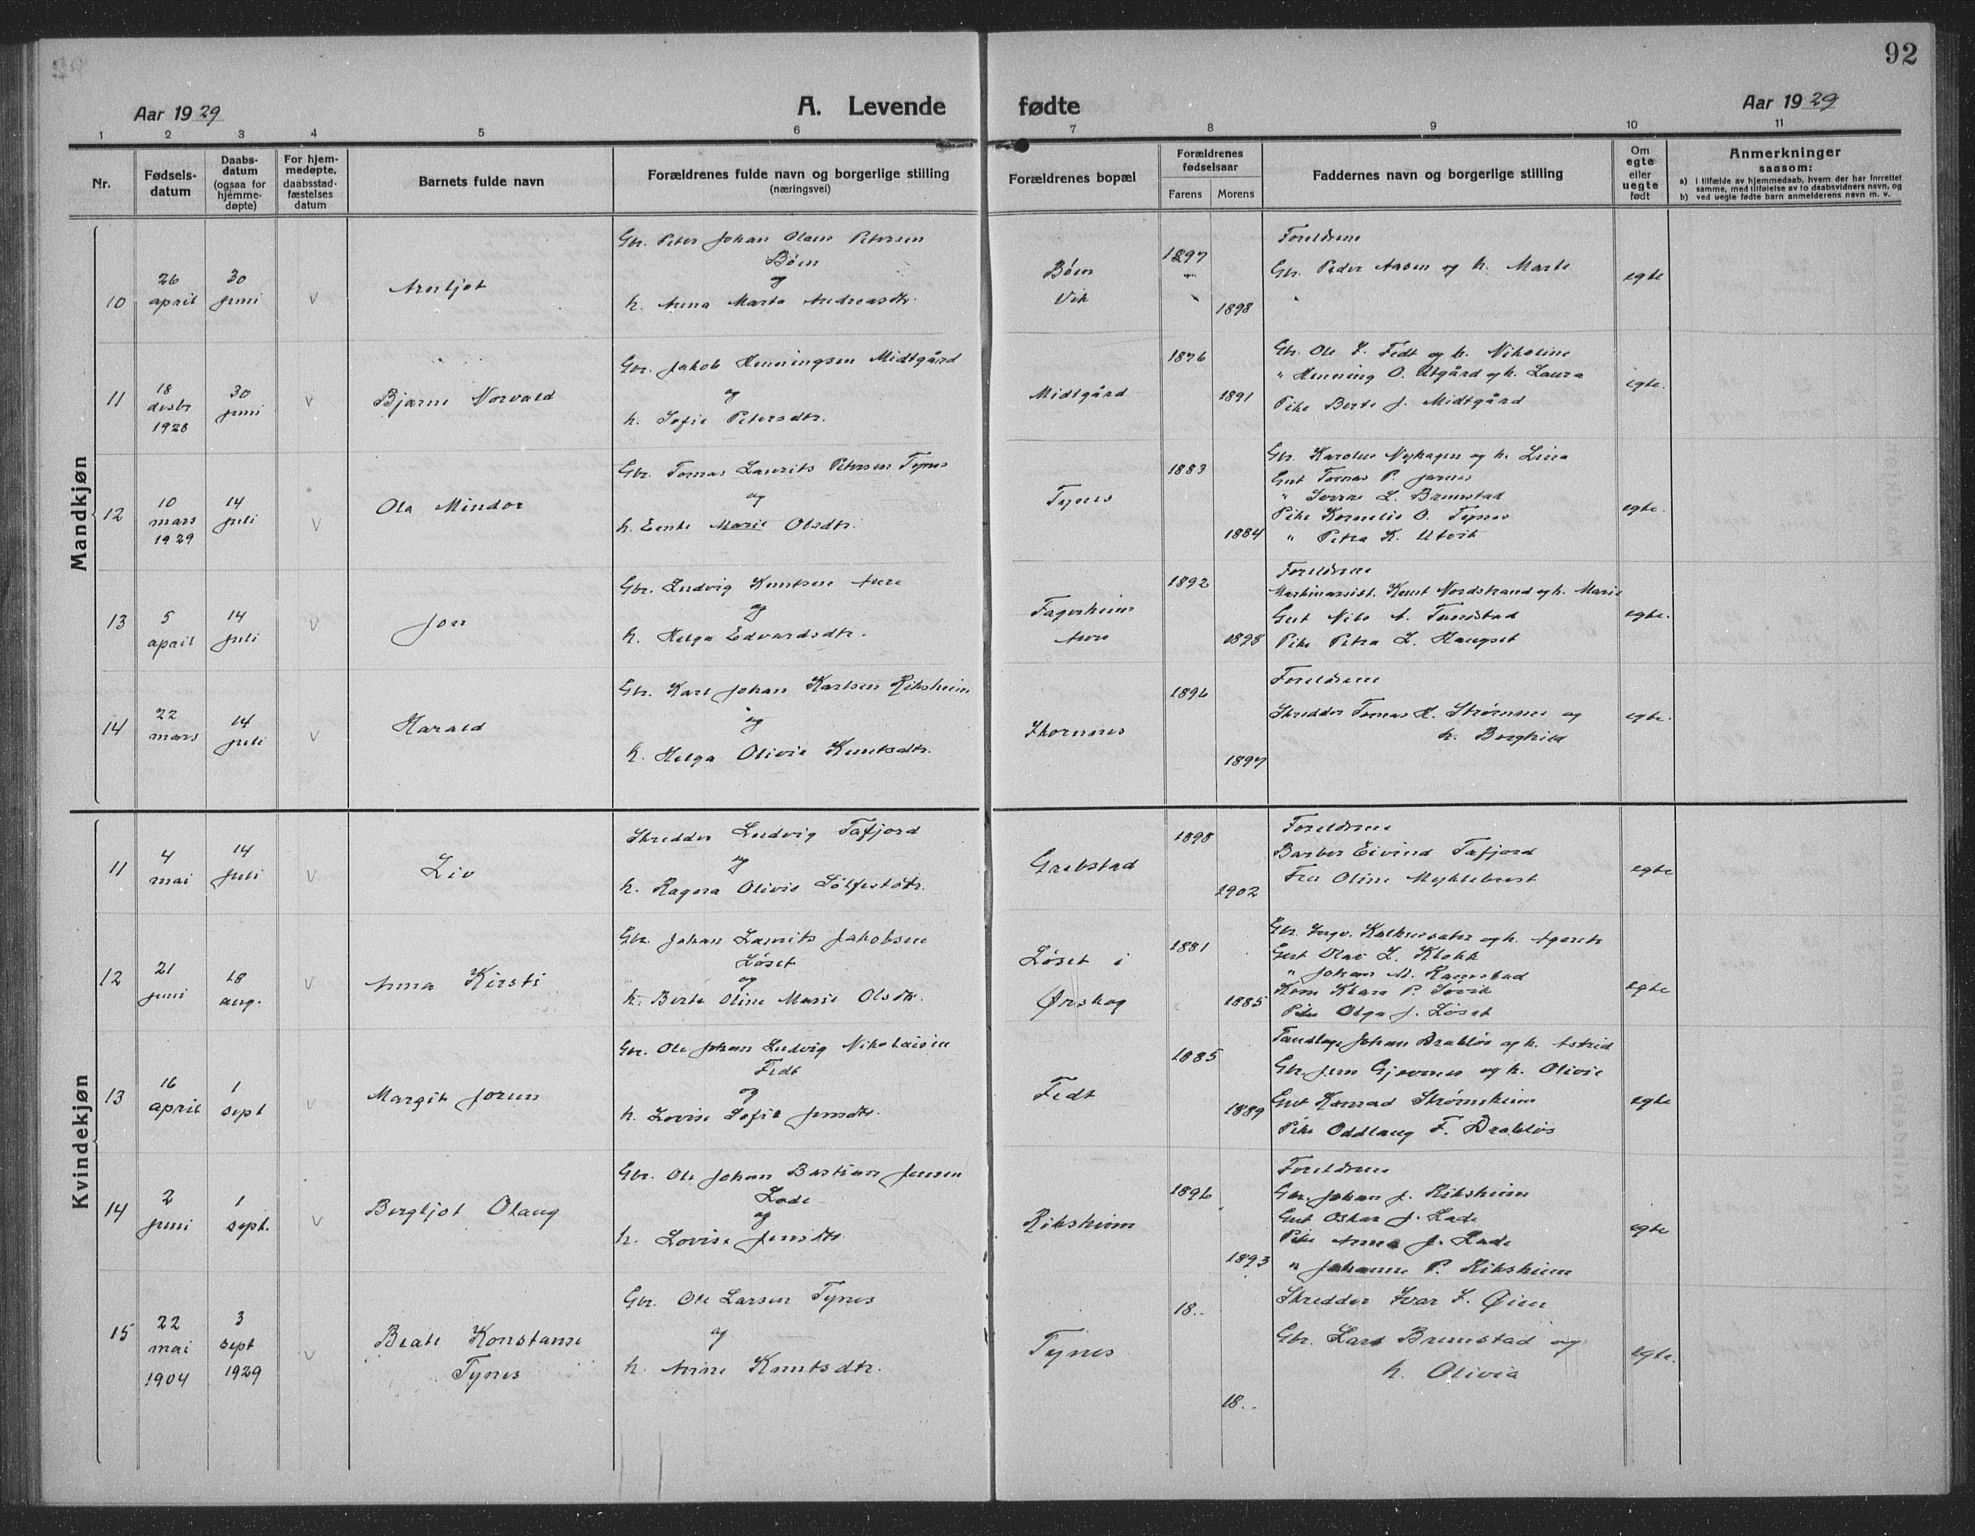 92
Aar 1929
A. Levende fødte
Aar 1929
1 2 3 4 5 6 7 8 9 10 11
Nr.
Fødsels-
datum
Daabs-
datum
(ogsaa for
hjemme-
døpte)
For hjem-
medøpte,
daabsstad-
fæstelses
datum
Barnets fulde navn
Forældrenes fulde navn og borgerlige stilling
(næringsvei)
Forældrenes bopæl
Forældrenes
fødselsaar
Farens Morens
Faddernes navn og borgerlige stilling
Om
egte
eller
uegte
født
Anmerkninger
saasom:
a) i tilfælde av hjemmedaab, hvem der har forrettet
samme, med tilføielse av to daabsvidners navn, og
b) ved uegte fødte barn anmelderens navn m. v.
Mandkjøn
10
26
april
30
juni
v
Arnljot
Gbr. Peter Johan Olaus Petersen
Bøen
og
h. Anna Marta Andreasdtr.
Bøen
Vik
1897
1898
Foreldrene
Gbr. Peder Aasen og h. Marte
egte
11
18
desbr
1928
30
juni
v
Bjarne Norvald
Gbr. Jakob Henningsen Midtgård
og
h. Sofie Petersdtr.
Midtgård
1876
1891
Gbr. Ole L. Fedt og h. Nikoline
" Henning O. Utgård og h. Laura
Pike Berte J. Midtgård
egte.
12
10
mars
1929
14
juli
v
Ola Mindor
Gbr. Tomas Laurits Petersen Tynes
og
h. Marie Olsdtr.
Tynes
1883
1884
Gbr. Karolus Nyhagen og h. Lina
Gut Tomas P.
" Sverre L. Bremstad
Pike Kornelie O. Tynes
" Petra K. Utvik
egte.
13
5
april
14
juli
v
Jon
Gbr. Ludvig Knutsen Aure
og
h. Helga Edvardsdtr.
Fagerheim
Aure
1892
1898
Foreldrene
Maskinassist. Knut Nordstrand og h. Marie
Gut Nils A. Tunstad
Pike Petra L. Haugset
egte.
14
22
mars
14
juli
v
Harald
Gbr. Karl Johan Karlsen Riksheim
og
h. Helga Olivie Knutsdtr.
1896
1897
Foreldrene
Skredder Tomas K. Strømmen og
h. Borghild
egte.
Kvindekjøn
11
4
mai
14
juli
v
Liv
Skredder Ludvig Tafjord
og
h. Ragna Olivie Sølfestdtr.
Grebstad
1898
1902
Foreldrene
Barber Eivind Tafjord
Fru Oline Myklebust
egte
12
21
juni
18
aug.
v
Anna Kirsti
Gbr. Johan Laurits Jakobsen
Løset
og
h. Berte Oline Marie Olsdtr.
Løset i
Ørskog
1881
1885
Gbr. Ingv. og h.
Gut Olav L. Klokk
" Johan M. Ramstad
Kone Klara P. Søvik
Pike Olga J. Løset
egte
13
16
april
1
sept
v
Margit Jorun
Gbr. Ole Johan Ludvig Nikolaisen
Fedt
og
h. Lovise Sofie Jensdtr.
Fedt
1885
1889
Tandlæge Johan Drabløs og h. Astrid
Gbr. Jens Gjevenes og h. Olivie
Gut Konrad Strømsheim
Pike Oddlaug F. Drabløs
egte
14
2
juni
1
sept.
v
Bergljot Olaug
Gbr. Ole Johan Bastian Jensen
Lade
og
h. Lovise Jensdtr.
Riksheim
1896
1893
Foreldrene
Gbr. Johan J. Riksheim
Gut Oskar J. Lade
Pike Anna J. Lade
" Johanne P. Riksheim
egte
15
22
mai
1904
3
sept
1929
v
Beate Konstanse
Tynes
Gbr. Ole Larsen Tynes
og
h. Anne Knutsdtr.
Tynes
18..
18..
Skredder Ivar L. Øien
Gbr. Lars Bremstad og
h. Olivia
egte.